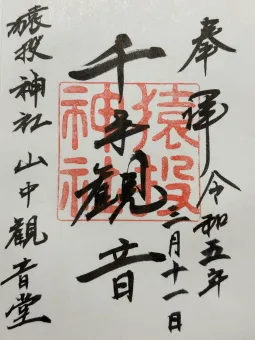 奉拝 令和五年
三月十一日
千手観音
猿投神社
猿投神社 山中観音堂